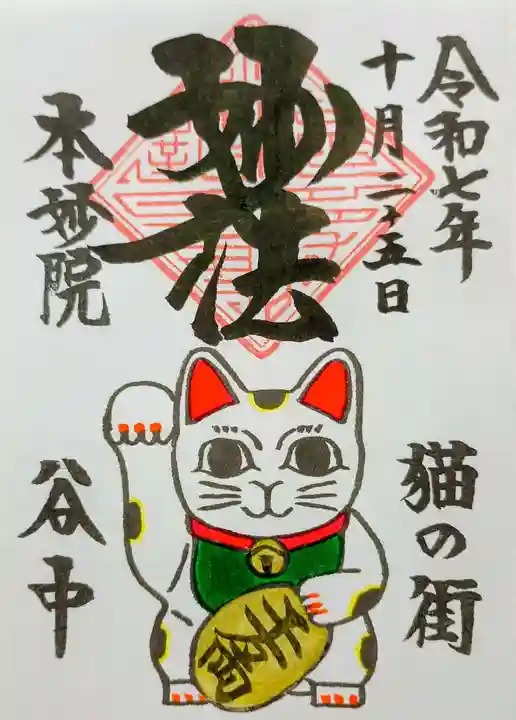 令和七年
十月二十五日
妙法
本妙院
猫の街
谷中
千萬